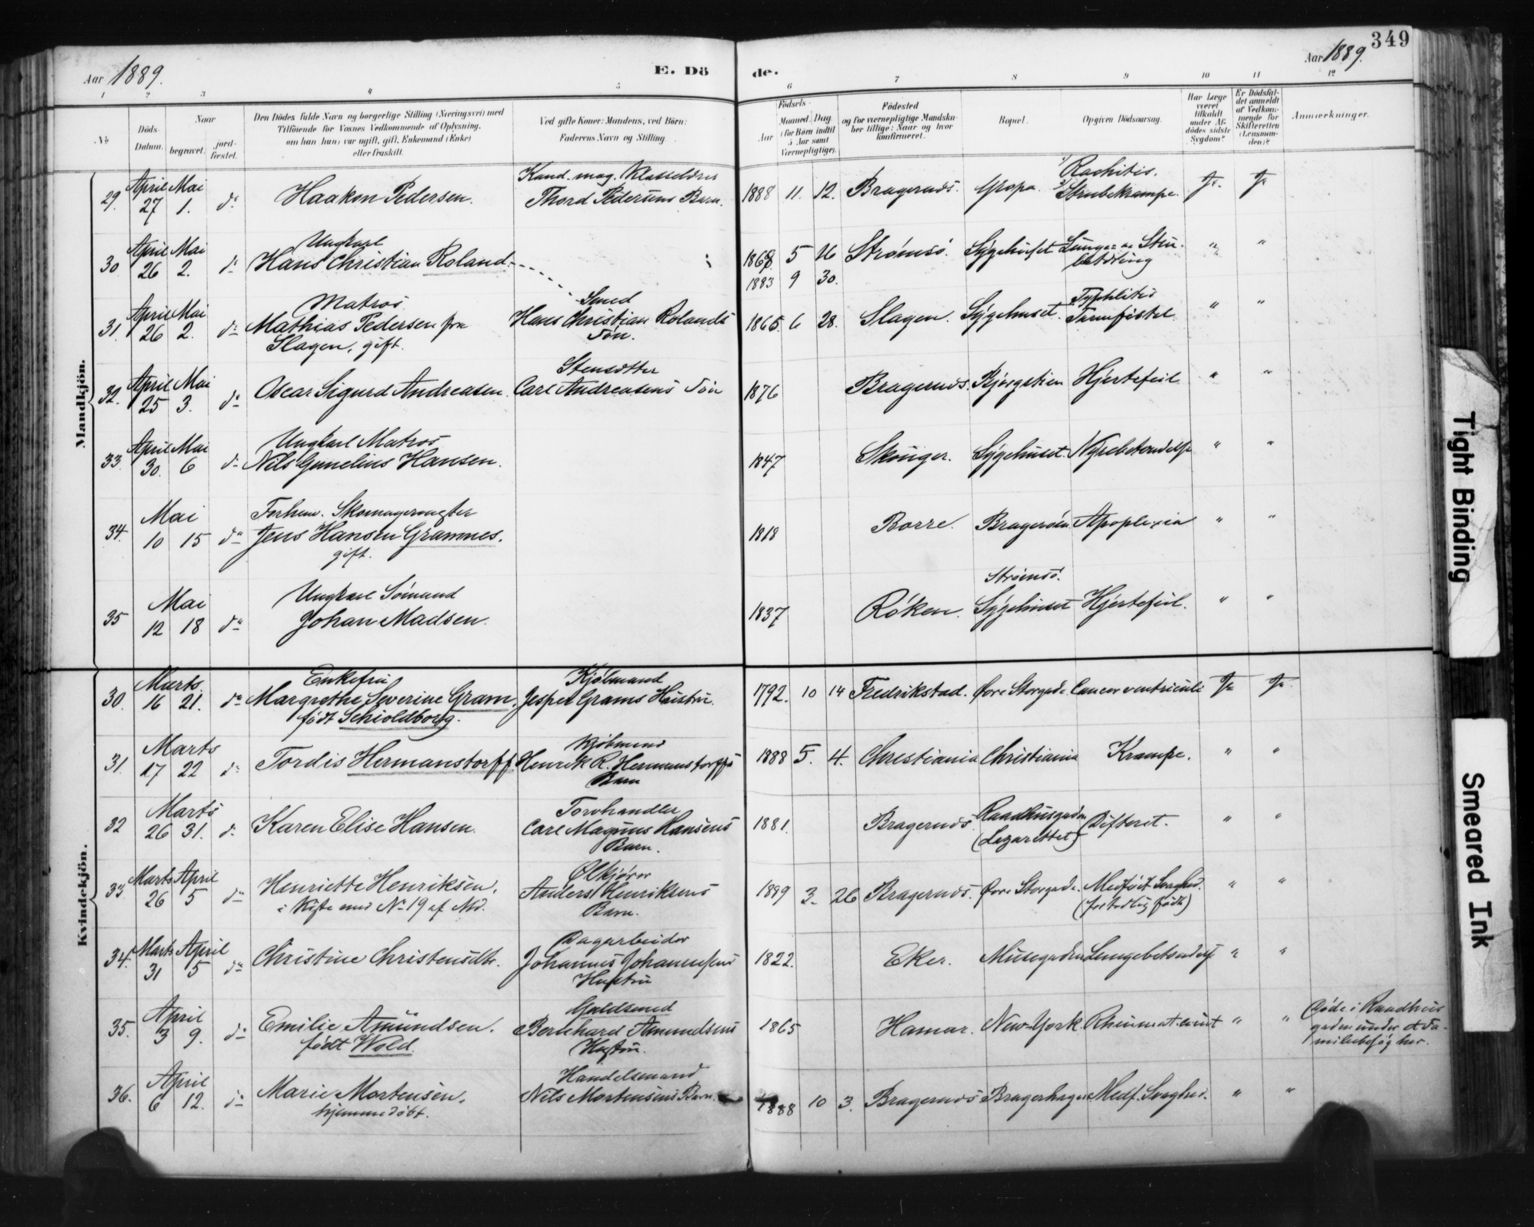 349
Aar 1889.
E. Dö de.
Aar 1889.
1 2 3 4 5 6 7 8 9 10 11 12
No
Döds-Datum.
Naar
begravet.
jord-fæstet.
Den Dödes fulde Navn og borgerlige Stilling (Næringsvei) med
Tilföiende for Voxnes Vedkommende af Oplysning,
om han (hun) var ugift, gift, Enkemand (Enke)
eller fraskilt.
Ved gifte Koner: Mandens, ved Börn:
Faderens Navn og Stilling.
Födsels-
Aar
Maaned Dag
(for Börn indtil
5 Aar samt
Værnepligtige).
Födested
og for værnepligtige Mandskaber tillige: Naar og hvor
konfirmeret.
Bopæl.
Opgiven Dödsaarsag.
Har Læge
været
tilkaldt
under Afdödes sidste
Sygdom?
Er Dödsfaldet anmeldt
af Vedkommende for
Skifteretten
(Lensmanden)?
Anmærkninger.
Mandkjön.
29. April 27 Mai 1. do Haakon Pedersen. Kand. mag. Klasselærer
Thord Pedersens Barn. 1888 11. 12. Bragernæs. 1) Rachitis.
2) Strubekrampe. Ja. Ja
30 April 26 Mai 2. do Ungkarl
Hans Christian Roland. 1868 5 16 Strømsø Sygehuset Lunge= og
1883 9 30.
31. April 26 Mai 2. do Matros
Mathias Pedersen fra
Slagen, gift. Smed
Hans Christian Rolands
Søn. 1865 6 28. Slagen. Sygehuset. Typhlitis
Tarmfistel " "
32. April 25 Mai 3. do Oscar Sigurd Andreasen Carl Andreasens Søn 1876 Bragernæs. Hjertefeil " "
33. April 30. Mai 6 do Ungkarl Matros
Nils Gunelius Hansen. 1847 Skouger. Sygehuset Nyrebetændelse " "
34. Mai 10 15 do Forhen. Skomagersvend
Jens Hansen Gramnes.
gift. 1818 Borre. Bragerøen Apoplexia " "
35 Mai 12 18 do Ungkarl Sømand
Johan Madsen. 1837 Røken. Strømsø.
Sygehuset Hjertefeil. " "
Kvindekjön.
30. Marts 16 21. do Enkefru
Margrethe Severine Gram,
født Schioldborg. Kjøbmand
Jesper Grams Hustru. 1792. 10 14 Fredrikstad. Øvre Storgade. Cancer ventriculi Ja Ja
31. Marts 17 22 do Tordis Hermanstorff Kjøbmand
Henrik R. Hermanstorffs
Barn 1888 5. 4. Christiania Christiania Krampe. " "
32 Marts 26 31. do Karen Elise Hansen. Torvhandler
Carl Magnus Hansens
Barn. 1881. Bragernæs. Raadhusgaden
(Lazarettet) Difterit. " "
33 Marts 26 April 5 do Henriette Henriksen,
i Kiste med No 19 af Md. Ølkjører
Anders Henriksens
Barn. 1889 3. 26 Bragernæs. Øvre Storgade. Medfødt Svaghed.
(fortidlig født) " "
34. Marts 31 April 5 do Christine Christensdtr. Dagarbeider
Johannes Johannesens
Hustru 1822. Eker. Musegaden Lungebetændelse " "
35. April 3 9. do Emilie Amundsen.
født Wold Guldsmed
Bernhard Amundsens
Hustru. 1865 Hamar. New-York " " Døde i Raadhus
gaden under et Fa-
miliebesøg her.
36. April 6 12. do Marie Mortensen.
hjemmedøbt. Handelsmand
Nils Mortensens Barn. 1888 10 3. Bragernæs Bragerhagen Medf. Svaghed. " "
Tight Binding
Smeared Ink